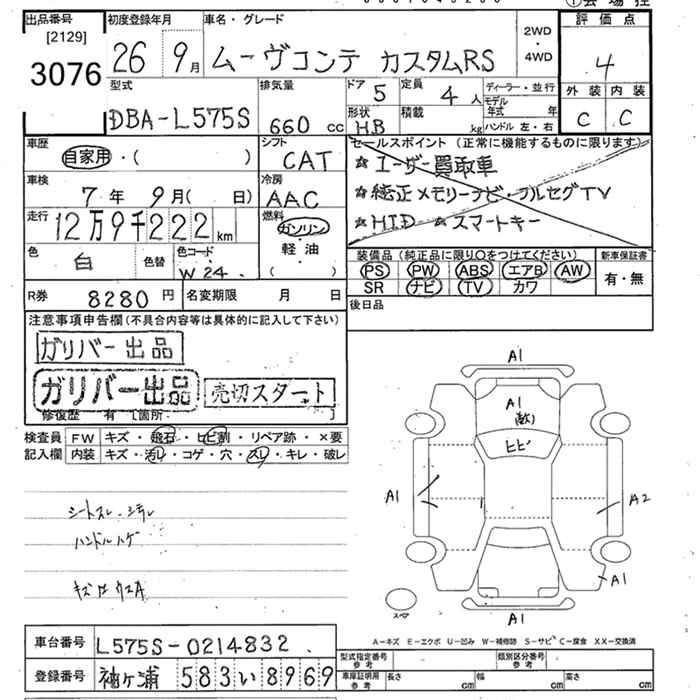 出品番号 初度登録年月 車名・グレード 評価点
[2129]
3076 26 9月 ムーヴコンテ カスタムRS 2WD・4WD 4
型式 排気量 ドア 5 定員 4人 ディーラー・並行 外装 内装
DBA-L575S 660cc 形状 HB 積載 kg モデル年式 年 ハンドル 左・右 C C
車歴 シフト セールスポイント (正常に機能するものに限ります)
自家用・( ) CAT ☆ユーザー買取車
車検 7年 9月( 日) 冷房 AAC ☆純正メモリーナビ・フルセグTV
走行 12万9千222km 燃料 ガソリン・軽油 ( ) ☆HID ☆スマートキー
色 白 色替 色コード W24 装備品 (純正品に限り○をつけてください) 新車保証書
PS PW ABS エアB AW 有・無
R券 8280円 名変期限 月 日 SR ナビ TV カワ
後日品
注意事項申告欄(不具合内容等は具体的に記入して下さい)
ガリバー出品
ガリバー出品 売切スタート
修復歴 有 [箇所 ]
検査員記入欄 FW キズ・飛石・ヒビ割・リペア跡・×要
内装 キズ・汚レ・コゲ・穴・スレ・キレ・破レ
A1
A1
ヒビ
A1 A2
A1
A1
ハンドルハゲ
A-キズ E-エクボ U-凹み W-補修跡 S-サビ C-腐食 XX-交換済
車台番号 L575S-0214832
型式指定番号 参考 類別区分番号 参考
登録番号 袖ヶ浦 583 い 8969
車庫証明用 参考 長さ cm 幅 cm 高さ cm